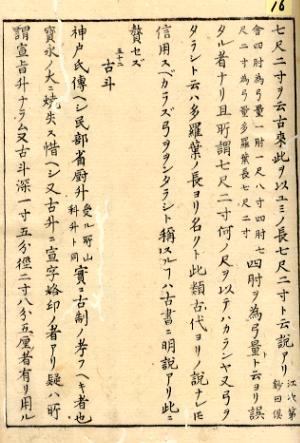 16
七尺二寸ヲ云古來此ヲ以ユミノ長七尺二寸ト云說アリ 江次第
會四肘為弓量一肘一尺八寸四肘七
尺二寸為弓量多羅葉長七尺二寸 四肘ヲ為弓量ト云ヨリ誤
タル者ナリ且所謂七尺二寸何ノ尺ヲ以テハカラシヤ又弓ヲ
タラシト云ハ多羅葉ノ長ヨリ名クト此類古代ヨリノ說ナレ𪜈
信用スベカラズ弓ヲヲンタラシト稱スルフハ古書ニ明說アリ此ニ
贅セズ
五十二 古斗
神戸氏傳ヘシ民部省廚升 受ル所山
科升ト同 實ニ古制ノ考フヘキ者也
寶永ノ大ニ燒失ス惜ヘシ又古升ニ宣字烙印ノ者アリ疑ハ所
謂宣旨升ナラム又古斗深一寸五分徑二寸八分五厘者有リ用ル